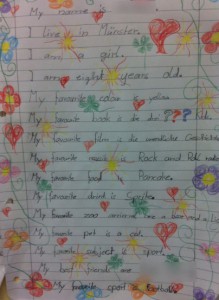 My name is
I live in Münster.
I am a girl.
I am eight years old.
My favourite color yellow
My favourite book is die ??? Kids.
My favourite film die unendliche Geschichte
My favourite music is Rock and Roll
My favourite food is Pancake.
My favourite drink is Sprite.
My favourite zoo animal
My favourite pet is a cat.
My favourite subject is sport.
My best friends are
My favourite sport is football.